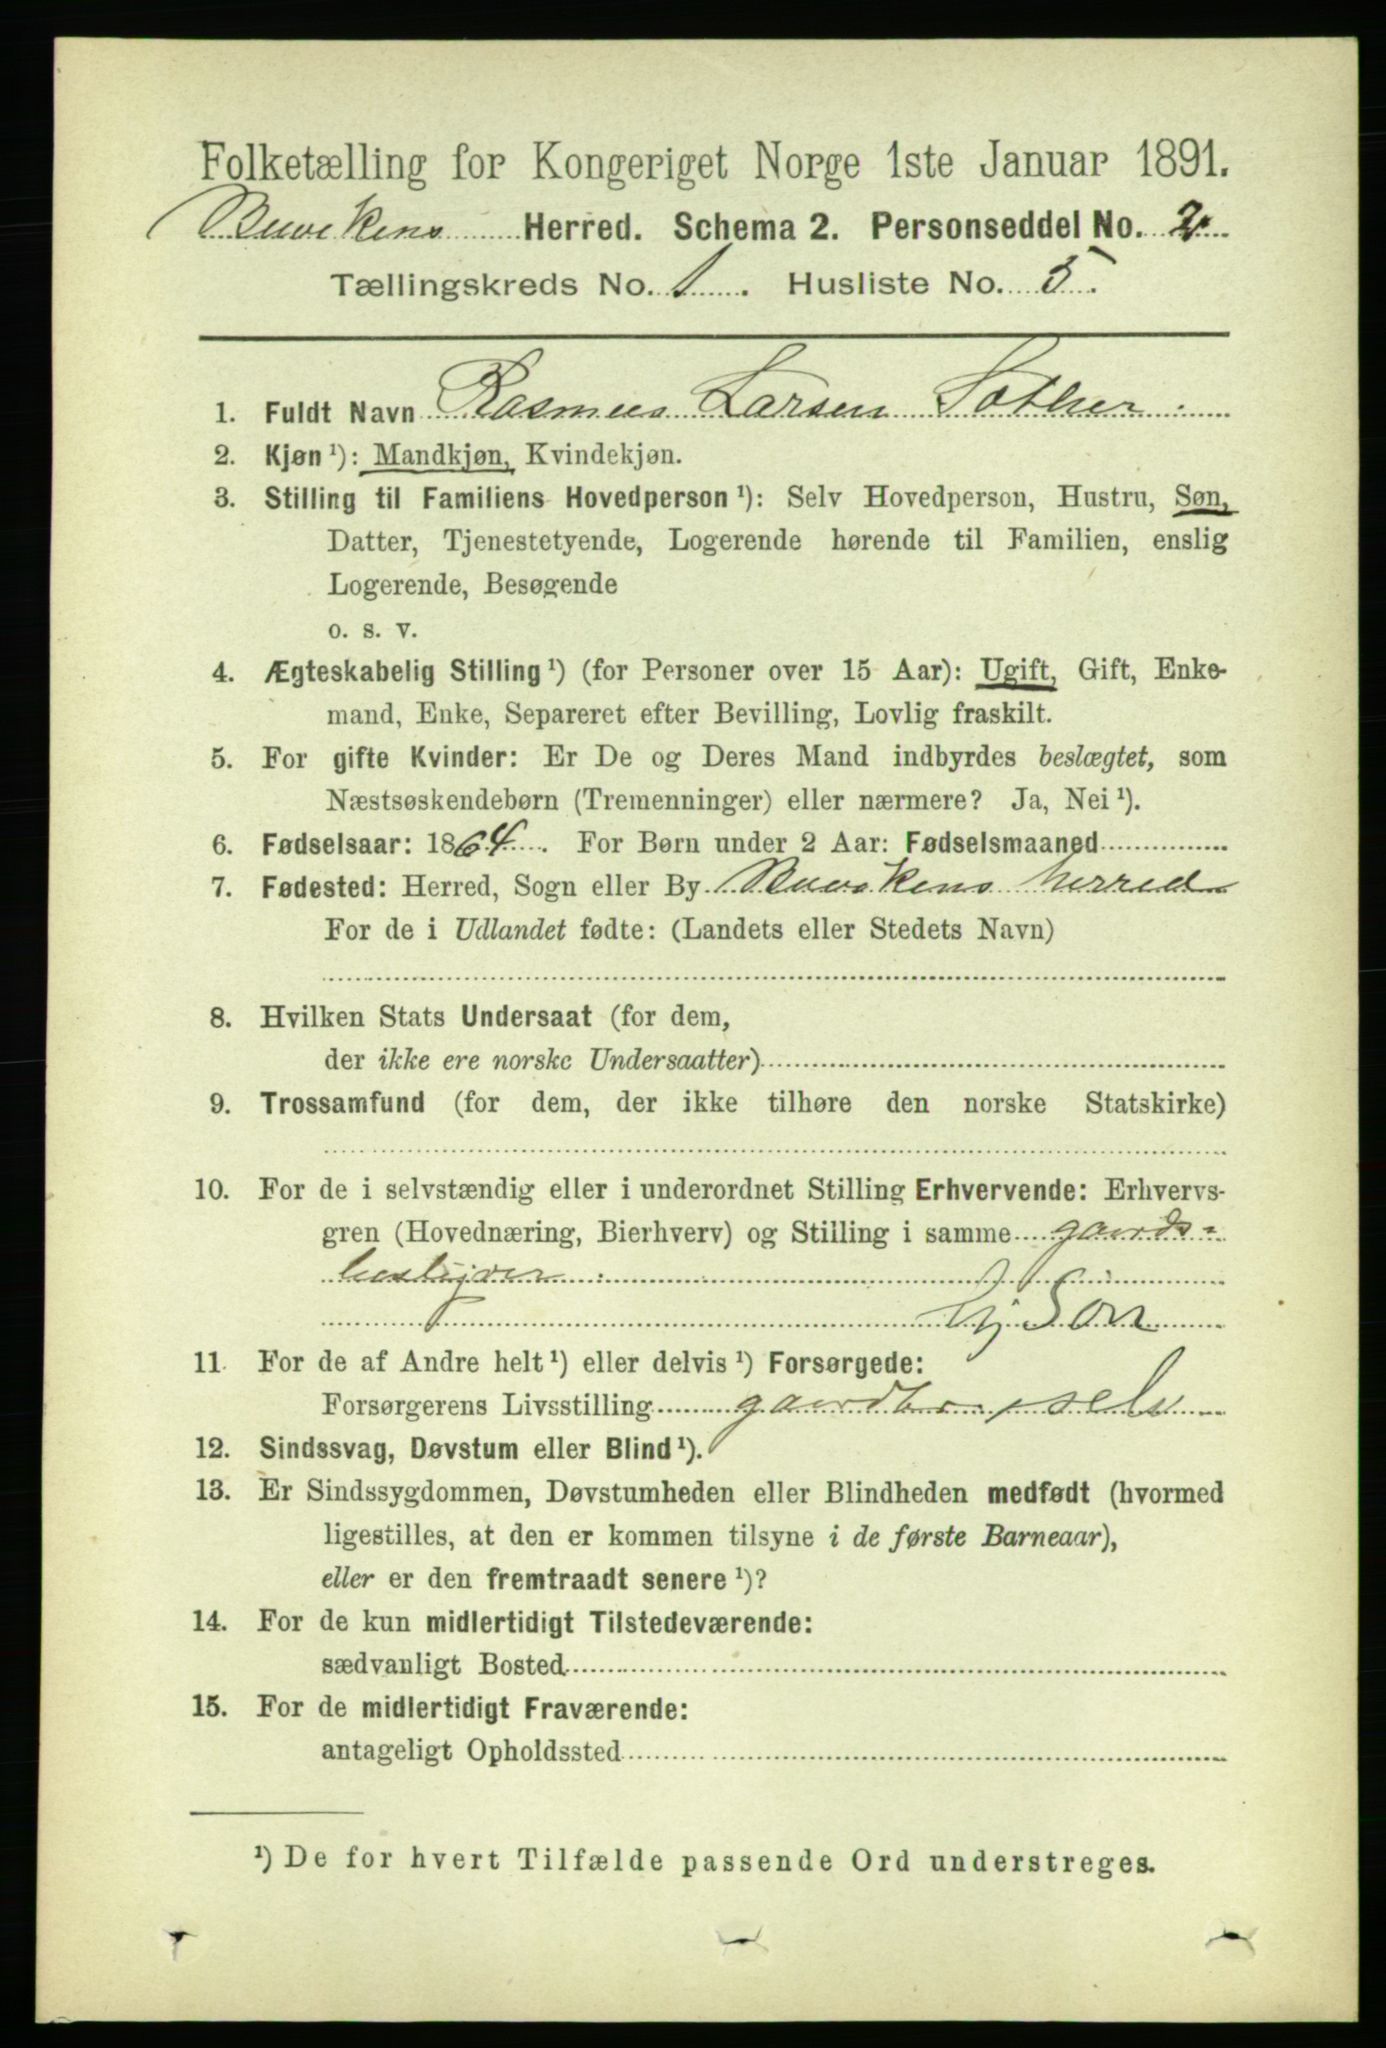 Folketælling for Kongeriget Norge 1ste Januar 1891.
Buvikens Herred. Schema 2. Personseddel No. 2.
Tællingskreds No. 1. Husliste No. 5.
1. Fuldt Navn Rasmus Larsen Sather
2. Kjøn ¹): Mandkjøn, Kvindekjøn.
3. Stilling til Familiens Hovedperson ¹): Selv Hovedperson, Hustru, Søn,
Datter, Tjenestetyende, Logerende hørende til Familien, enslig
Logerende, Besøgende
o. s. v.
4. Ægteskabelig Stilling ¹) (for Personer over 15 Aar): Ugift, Gift, Enke-
mand, Enke, Separeret efter Bevilling, Lovlig fraskilt.
5. For gifte Kvinder: Er De og Deres Mand indbyrdes beslægtet, som
Næstsøskendebørn (Tremenninger) eller nærmere? Ja, Nei ¹).
6. Fødselsaar: 1864. For Børn under 2 Aar: Fødselsmaaned
7. Fødested: Herred, Sogn eller By Buvikens herred
For de i Udlandet fødte: (Landets eller Stedets Navn)
8. Hvilken Stats Undersaat (for dem,
der ikke ere norske Undersaatter)
9. Trossamfund (for dem, der ikke tilhøre den norske Statskirke)
10. For de i selvstændig eller i underordnet Stilling Erhvervende: Erhvervs-
gren (Hovednæring, Bierhverv) og Stilling i samme gaards-
bestyrer
Søn
11. For de af Andre helt ¹) eller delvis ¹) Forsørgede:
Forsørgerens Livsstilling gaardbr. selv
12. Sindssvag, Døvstum eller Blind ¹).
13. Er Sindssygdommen, Døvstumheden eller Blindheden medfødt (hvormed
ligestilles, at den er kommen tilsyne i de første Barneaar),
eller er den fremtraadt senere ¹)?
14. For de kun midlertidigt Tilstedeværende:
sædvanligt Bosted
15. For de midlertidigt Fraværende:
antageligt Opholdssted
¹) De for hvert Tilfælde passende Ord understreges.